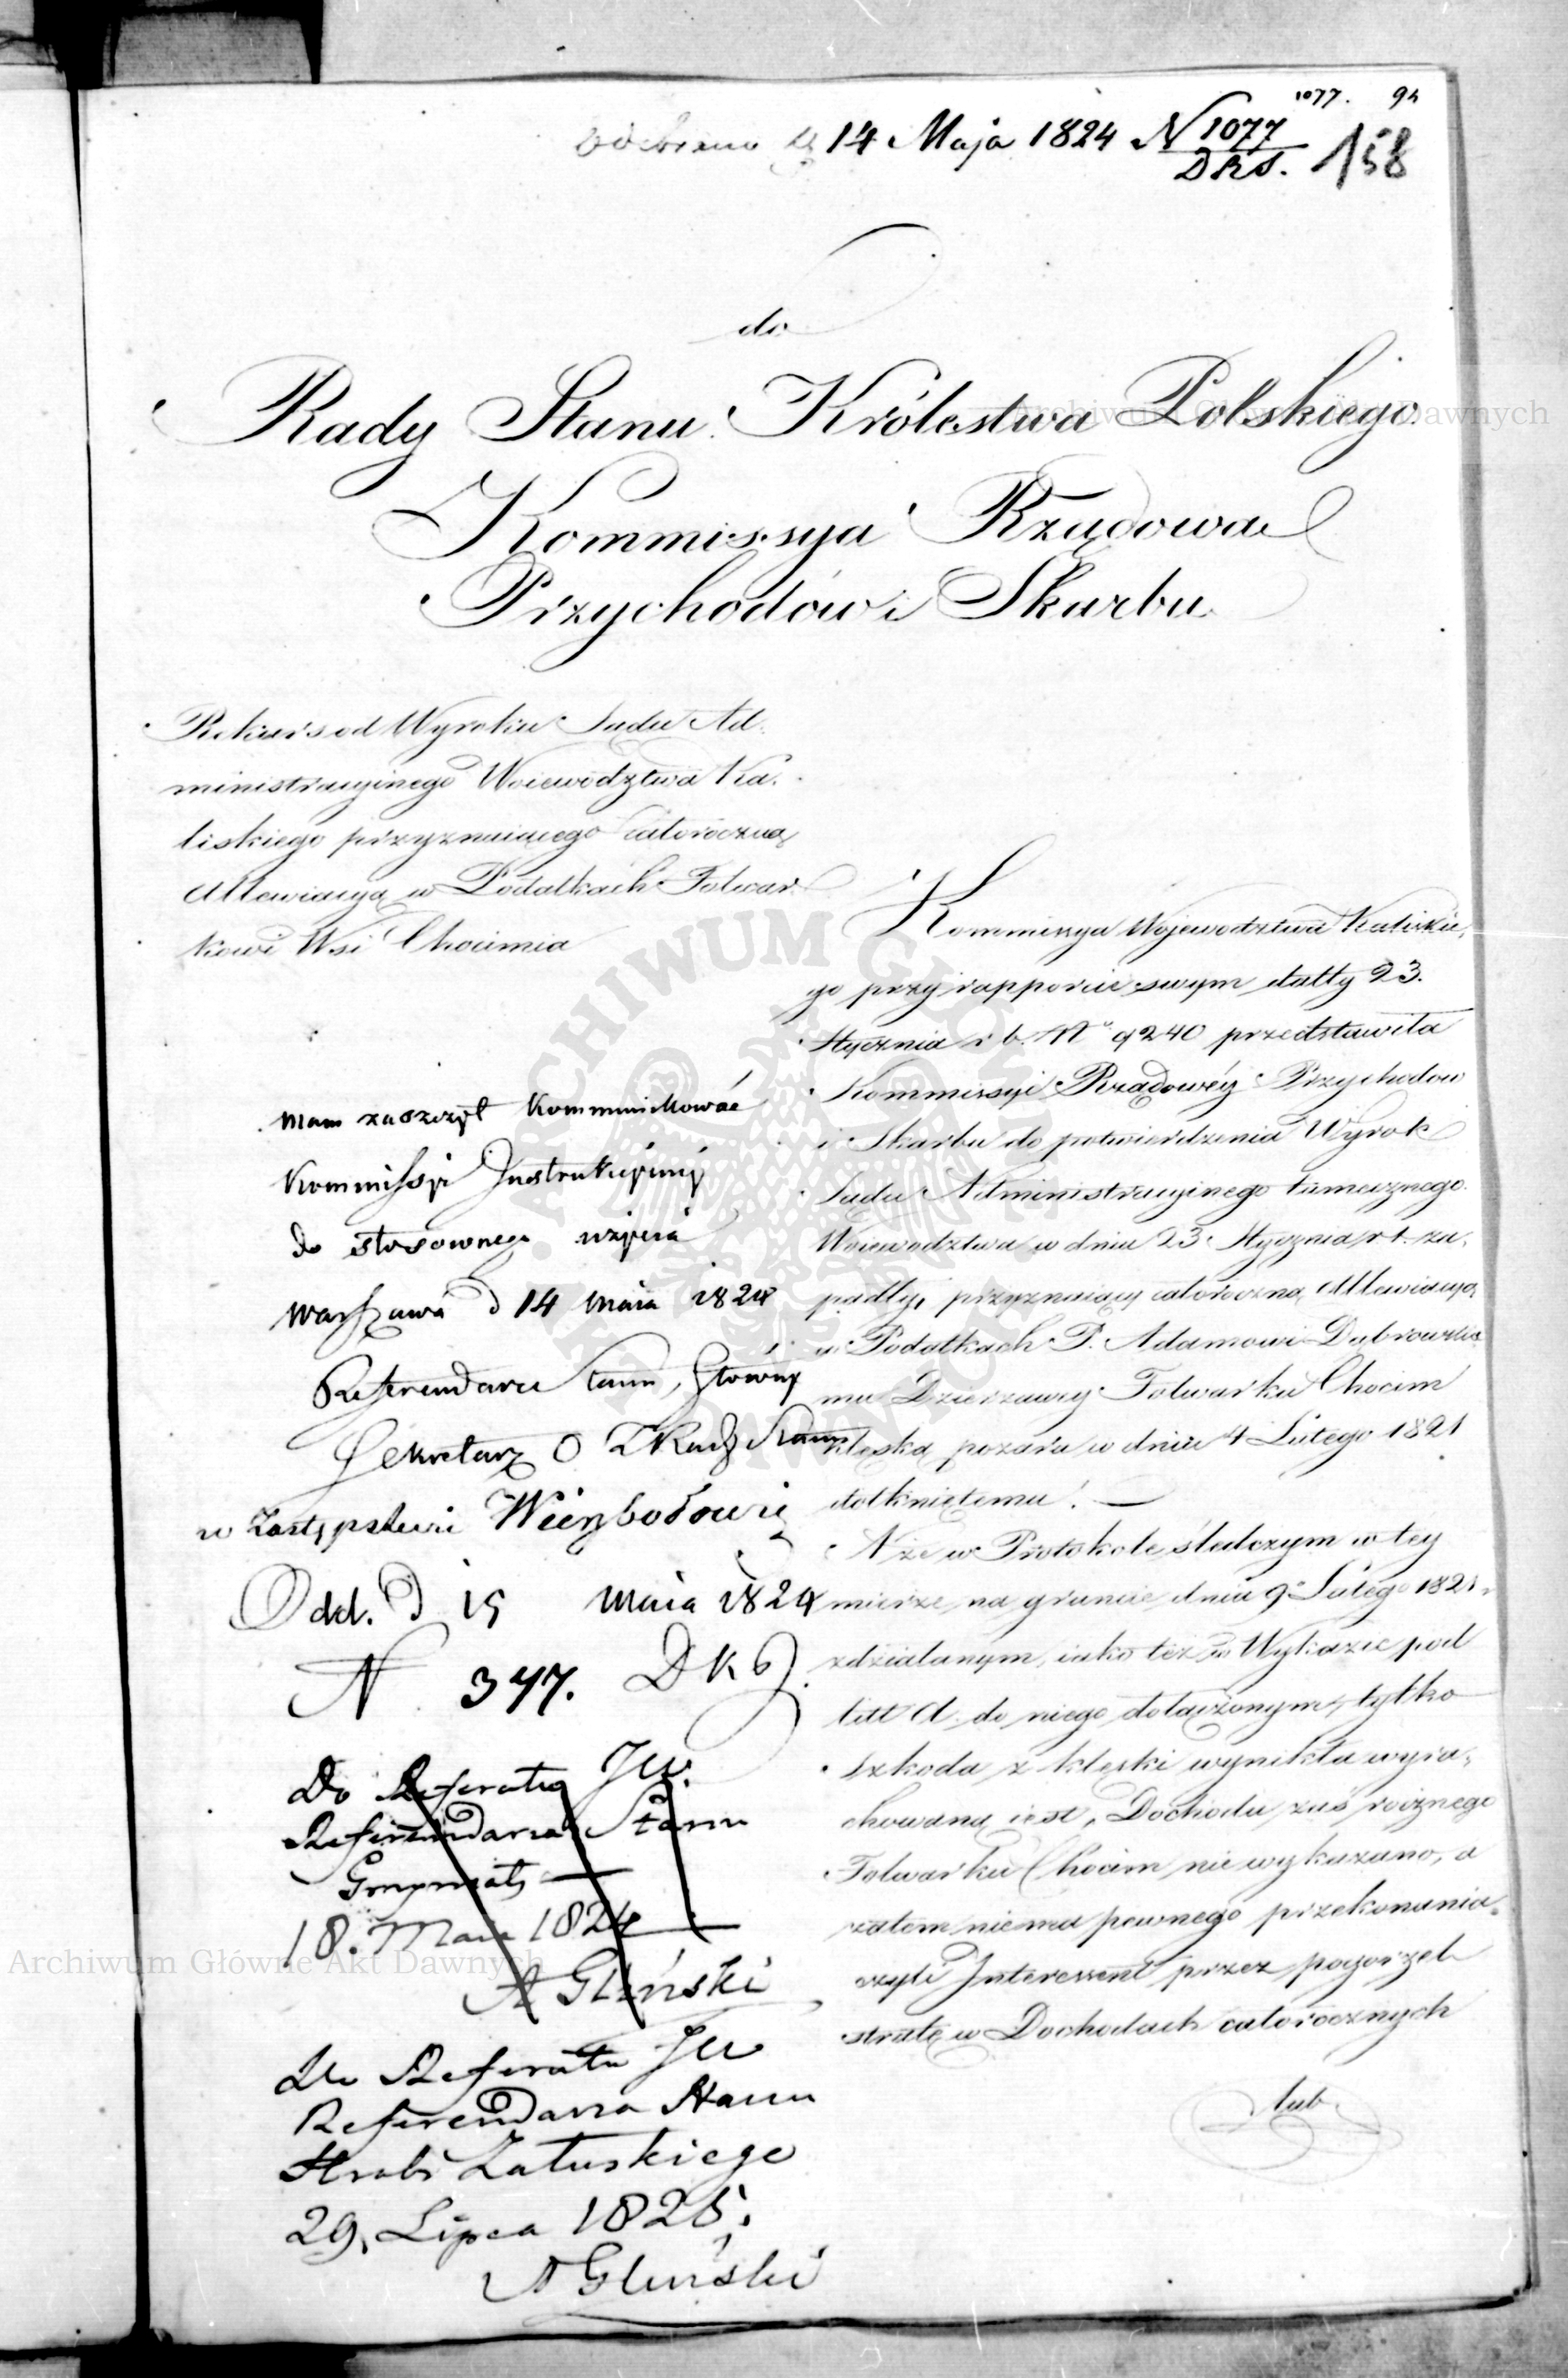 1077. 94
Odebrano d. 14 Maja 1824 N 1077
DRS. 158
do
Rady Stanu Królestwa Polskiego
Kommissya Rządowa
Przychodów i Skarbu
Rekurs od Wyroku Sądu Ad-
ministracyinego Woiewództwa Ka-
liskiego przyznaiącego całoroczną
Allewiacyą w Podatkach Folwar-
kowi Wsi Chocimia
mam zaszczyt kommunikować
Kommissyi Instrukcyiney
do stosownego użycia
Warszawa d 14 maia 1824
Referendarz Stanu, Główny
Sekretarz
w zastępstwie Wierzbołowicz
Odd. d 15 Maia 1824
N 347. DKJ.
Do Referatu JW.
Referendarza Stanu
18. Maia 1824
A Gliński
Do Referatu JW
Referendarza Stanu
Hrabi Załuskiego
29. Lipca 1825.
A Gliński
Kommissya Województwa Kaliskie-
go przy rapporcie swym datty 23.
Stycznia r b. No 9240 przedstawiła
Kommissyi Rządowéy Przychodów
i Skarbu do potwierdzenia Wyrok
Sądu Administracyinego tamecznego
Woiewództwa w dniu 23 Stycznia r t. za-
padły, przyznaiący całoroczną Allewiacyą
w Podatkach P. Adamowi Dubrowskie-
mu Dzierzawcy Folwarku Chocim
klęską pożaru w dniu 4 Lutego 1821
dotkniętemu.
A że w Protokole śledczym w tey
mierze na gruncie dnia 9o Lutego 1821 r.
zdziałanym, iako też w Wykazie pod
litt A. do niego dołączonym, tylko
szkoda z klęski wynikła wyra-
chowaną iest, Dochodu zaś rocznego
Folwarku Chocim nie wykazano, a
zatem niema pewnego przekonania
czyli Interessent przez pogorzel
stratę w Dochodach całorocznych
lub
ARCHIWUM GŁÓWNE AKT DAWNYCH
Archiwum Główne Akt Dawnych
Archiwum Główne Akt Dawnych